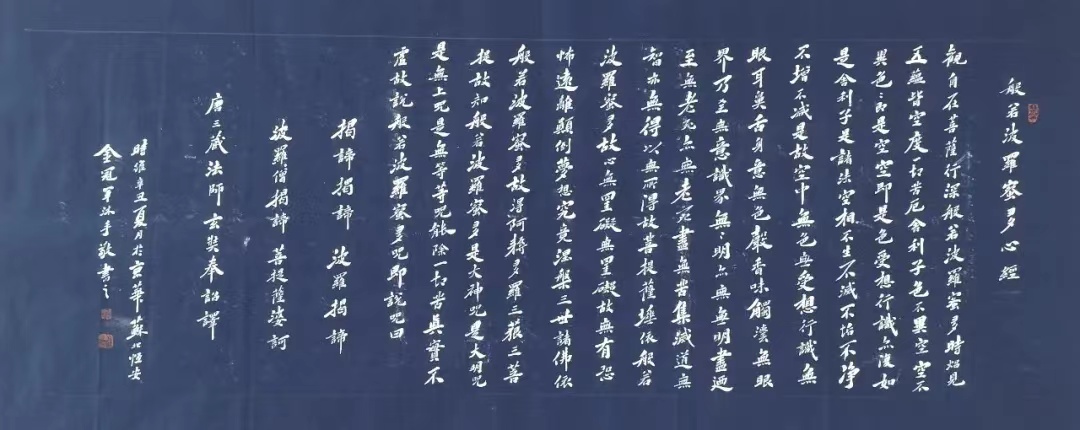 般若波羅密多心經
觀自在菩薩行深般若波羅密多時炤見
五蘊皆空度一切苦厄舍利子色不異空空不
異色色即是空空即是色受想行識亦復如
是舍利子是諸法空相不生不滅不垢不净
不增不減是故空中無色無受想行識無
眼耳鼻舌身意無色聲香味觸法無眼
界乃至無意識界無無明亦無無明盡迺
至無老死亦無老死盡無苦集滅道無
智亦無得以無所得故菩提薩埵依般若
波羅密多故心無罣礙無罣礙故無有恐
怖遠離顛倒夢想究竟涅槃三世諸佛依
般若波羅密多故得阿耨多羅三藐三菩
提故知般若波羅密多是大神咒是大明咒
是無上咒是無等等咒能除一切苦真實不
虛故說般若波羅密多咒即說咒曰
揭諦揭諦 波羅揭諦
波羅僧揭諦 菩提薩婆訶
唐三藏法師玄奘奉詔譯
時維辛丑夏月於京華蘇
金冠軍沐手敬書之